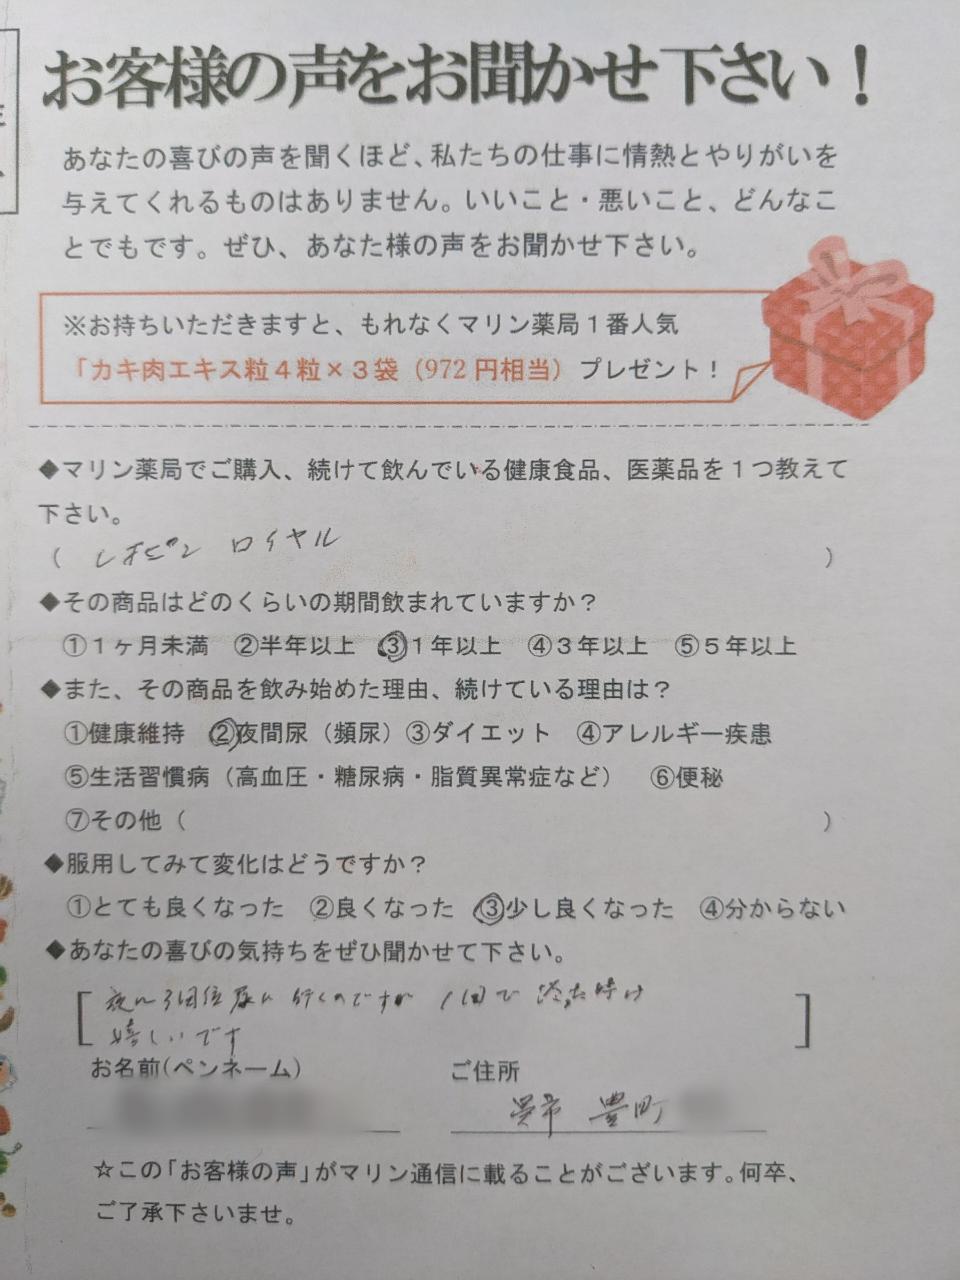 お客様の声をお聞かせ下さい！
あなたの喜びの声を聞くほど、私たちの仕事に情熱とやりがいを
与えてくれるものはありません。いいこと・悪いこと、どんなこ
とでもです。ぜひ、あなた様の声をお聞かせ下さい。
※お持ちいただきますと、もれなくマリン薬局１番人気
「カキ肉エキス粒４粒×３袋（972円相当）プレゼント！
◆マリン薬局でご購入、続けて飲んでいる健康食品、医薬品を１つ教えて
下さい。
（ レオピン ロイヤル ）
◆その商品はどのくらいの期間飲まれていますか？
①１ヶ月未満 ②半年以上 ③１年以上 ④３年以上 ⑤５年以上
◆また、その商品を飲み始めた理由、続けている理由は？
①健康維持 ②夜間尿（頻尿）③ダイエット ④アレルギー疾患
⑤生活習慣病（高血圧・糖尿病・脂質異常症など） ⑥便秘
⑦その他（ ）
◆服用してみて変化はどうですか？
①とても良くなった ②良くなった ③少し良くなった ④分からない
◆あなたの喜びの気持ちをぜひ聞かせて下さい。
[ 夜に3回位尿に行くのですが 1回で済んだ時は
嬉しいです ]
お名前(ペンネーム) ご住所
呉市 豊町
☆この「お客様の声」がマリン通信に載ることがございます。何卒、
ご了承下さいませ。